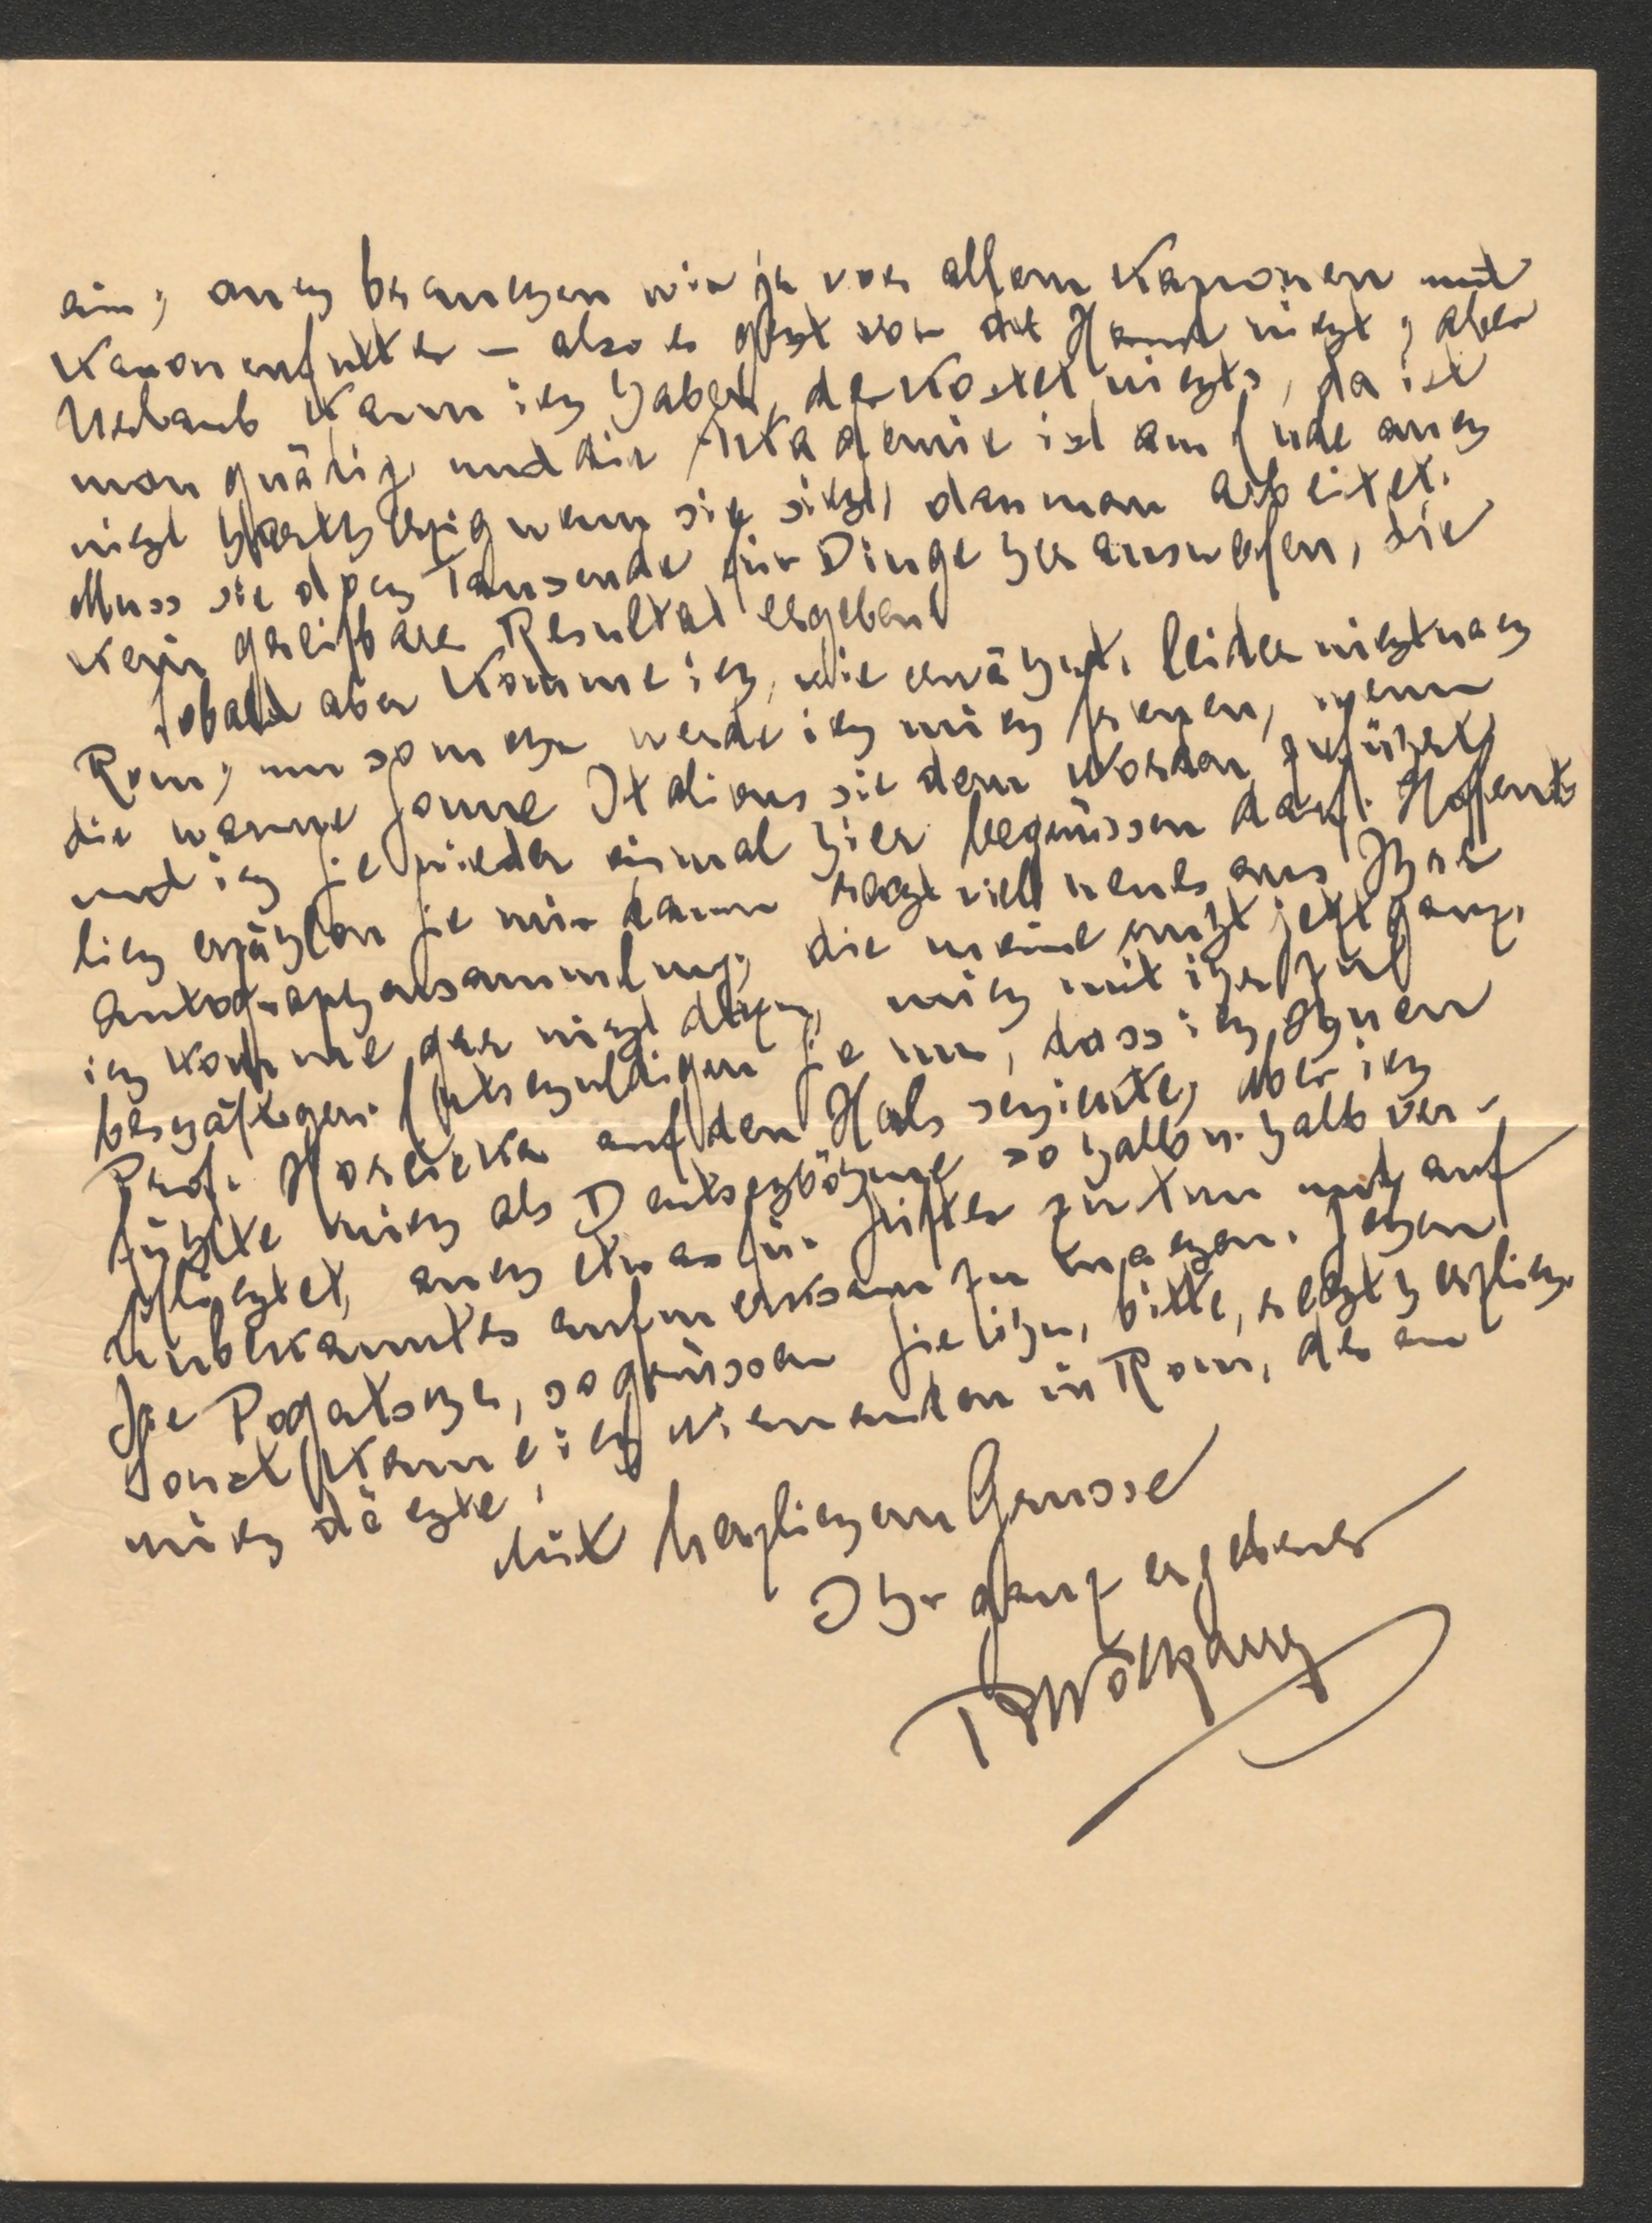 ein; auch brauchen wir ja vor allem Kanonen und
Kanonenfutter – also es geht von der Hand nicht; aber
Urlaub kann ich haben, der kostet nichts, da ist
man gnädig und die Akademie ist am Ende auch
nicht hartherzig wenn sie sieht, dass man arbeitet.
Muss sie doch Tausende für Dinge herauswerfen, die
kein greifbares Resultat ergeben!
Sobald aber komme ich, wie erwähnt, leider nicht nach
Rom; um so mehr werde ich mich freuen, wenn
die warme Sonne Italiens sie dem Norden zuführt
und ich Sie wieder einmal hier begrüssen darf. Hoffent-
lich erzählen Sie mir dann recht viel neues aus Ihrer
Autographensammlung, die meine ruht jetzt ganz,
ich komme gar nicht dazu, mich mit ihr zu
beschäftigen. Entschuldigen Sie nur, dass ich Ihnen
Prof. Horcicka auf den Hals schickte; aber ich
fühlte mich als Deutschböhme so halb u. halb ver-
pflichtet, auch etwas für Stifter zu tun und auf
Unbekanntes aufmerksam zu machen. Sehen
Sie Pogatscher, so grüssen Sie ihn, bitte, recht herzlich.
Sonst kenne ich niemanden in Rom, der an
mich dächte.
Mit herzlichem Grusse
Ihr ganz ergebener
RWolkan